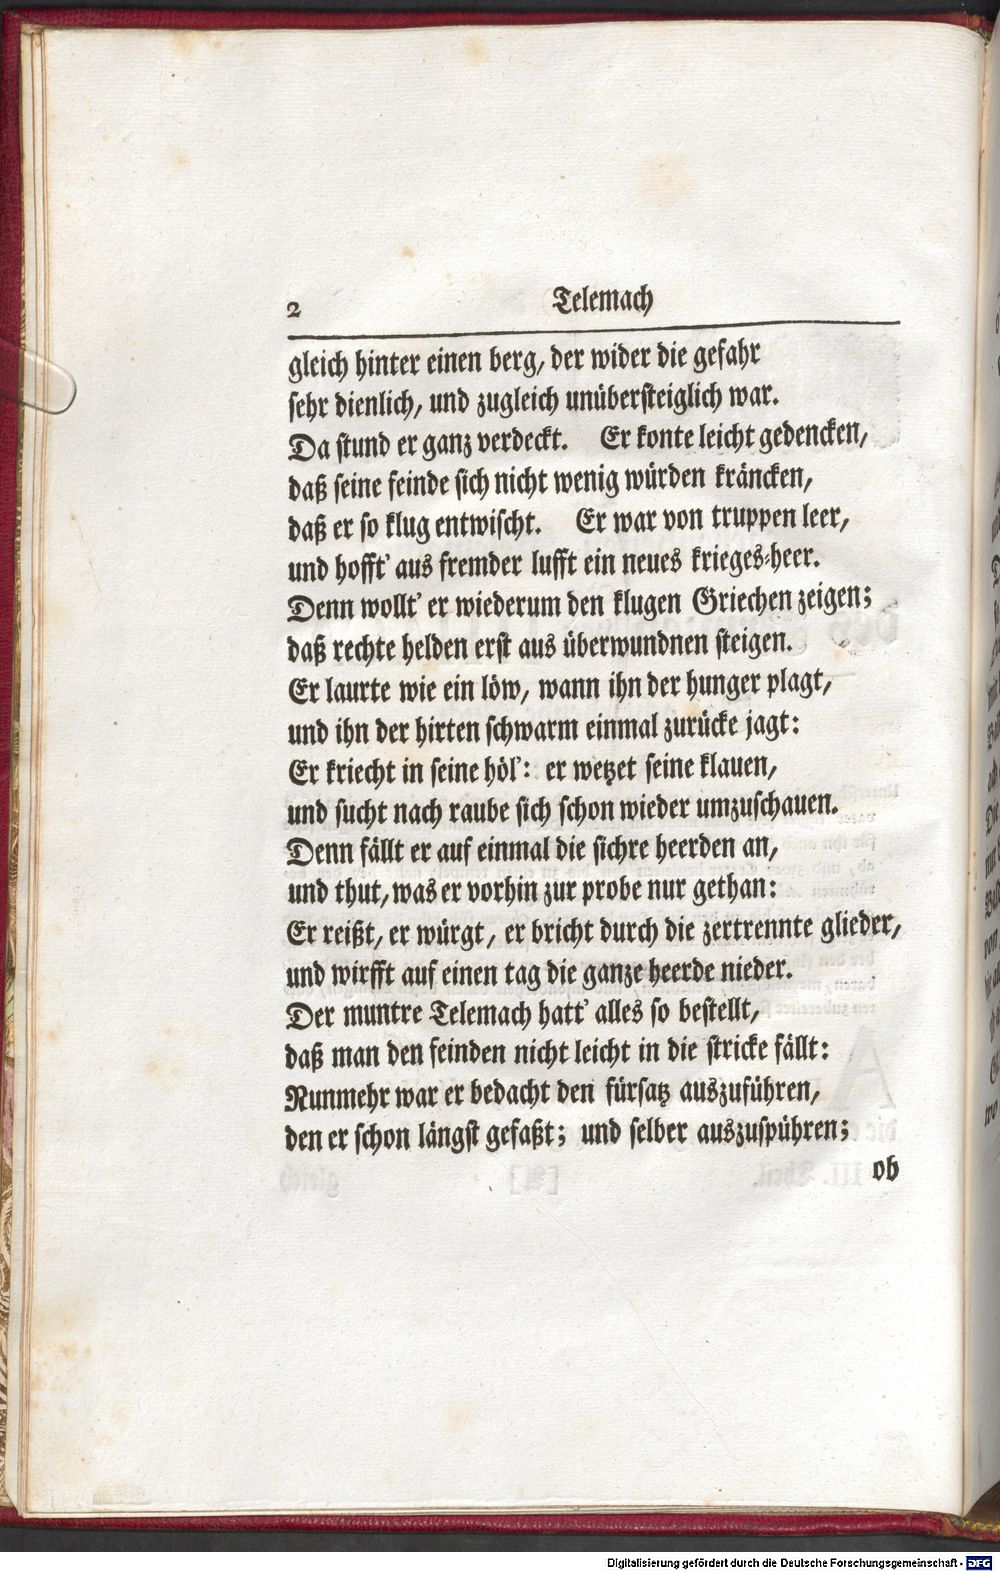 2 Telemach
gleich hinter einen berg, der wider die gefahr
sehr dienlich, und zugleich unübersteiglich war.
Da stund er ganz verdeckt. Er konte leicht gedencken,
daß seine feinde sich nicht wenig würden kräncken,
daß er so klug entwischt. Er war von truppen leer,
und hofft' aus fremder lufft ein neues krieges-heer.
Denn wollt' er wiederum den klugen Griechen zeigen;
daß rechte helden erst aus überwundnen steigen.
Er laurte wie ein löw, wann ihn der hunger plagt,
und ihn der hirten schwarm einmal zurücke jagt:
Er kriecht in seine höl': er wetzet seine klauen,
und sucht nach raube sich schon wieder umzuschauen.
Denn fällt er auf einmal die sichre heerden an,
und thut, was er vorhin zur probe nur gethan:
Er reißt, er würgt, er bricht durch die zertrennte glieder,
und wirfft auf einen tag die ganze heerde nieder.
Der muntre Telemach hatt' alles so bestellt,
daß man den feinden nicht leicht in die stricke fällt:
Nunmehr war er bedacht den fürsatz auszuführen,
den er schon längst gefaßt; und selber auszuspühren;
ob
Digitalisierung gefördert durch die Deutsche Forschungsgemeinschaft - DFG